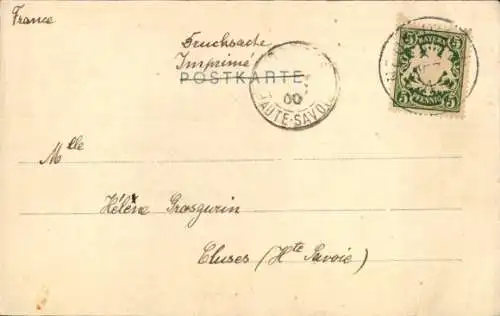 France
Drucksache
Imprimé
POSTKARTE
00
HAUTE-SAVOIE
5 BAYERN 5
5 PFENNIG 5
Mlle
Hélène Grosgurin
Cluses (Hte Savoie)